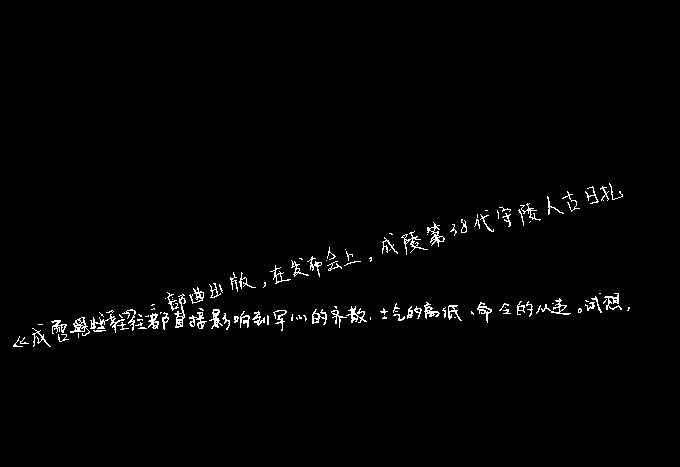 三部曲出版，在发布会上，成陵第38代守陵人古日扎
都直接影响到军心的齐散、士气的高低、命令的从违。试想，